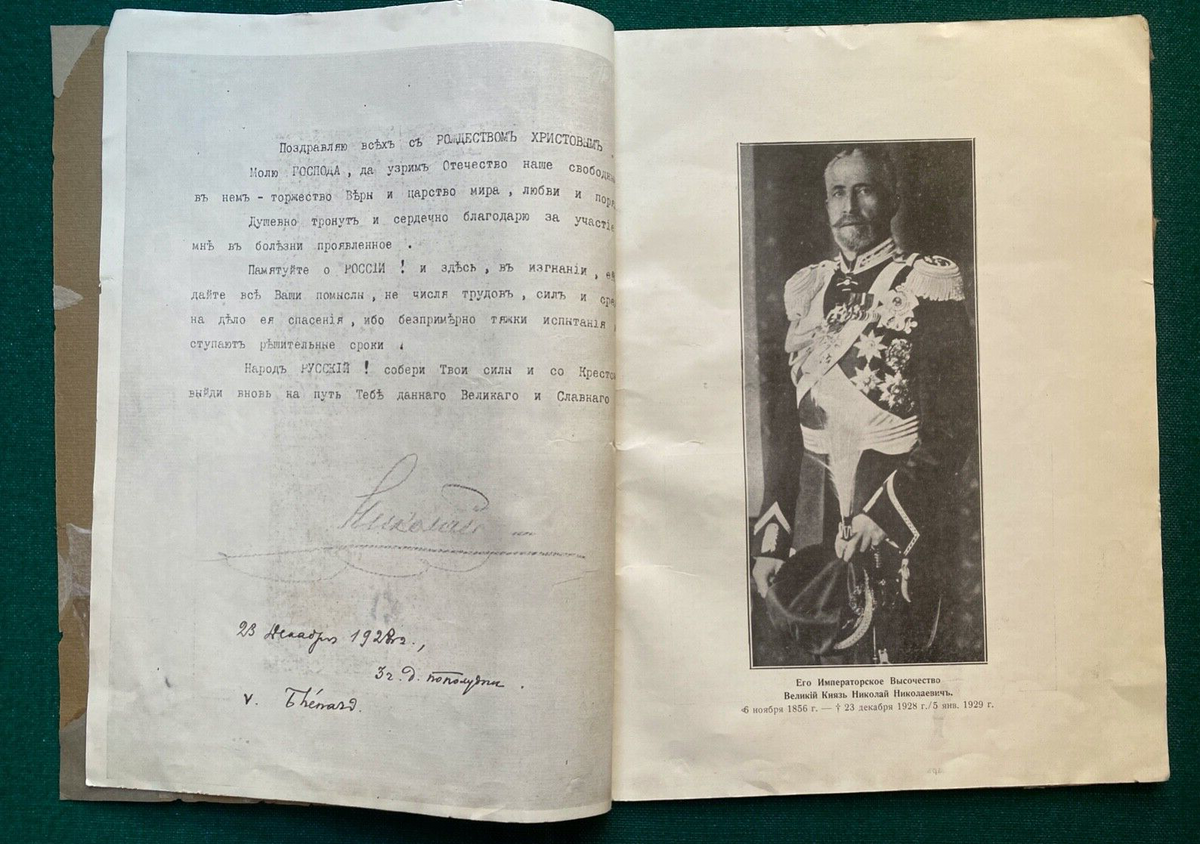 Поздравляю всѣхъ съ РОЖДЕСТВОМЪ ХРИСТОВЫМЪ .
Молю ГОСПОДА , да узримъ Отечество наше
въ немъ - торжество Вѣры и царство мира , любви и
Душевно тронутъ и сердечно благодарю за участіе
мнѣ въ болѣзни проявленное .
Памятуйте о РОССІИ ! и здѣсь , въ изгнаніи ,
дайте всѣ Ваши помыслы , не числя трудовъ , силъ и
на дѣло ея спасенія , ибо безпримѣрно тяжки испытанія
ступаютъ рѣшительные сроки .
Народъ РУССКІЙ ! собери Твои силы и со
выйди вновь на путь Тебѣ даннаго Великаго и Славнаго
Николай
23 Декабря 1928г.,
3ч. д. пополудни .
v. Thénard.
Его Императорское Высочество
Великій Князь Николай Николаевичъ.
6 ноября 1856 г. — † 23 декабря 1928 г./5 янв. 1929 г.